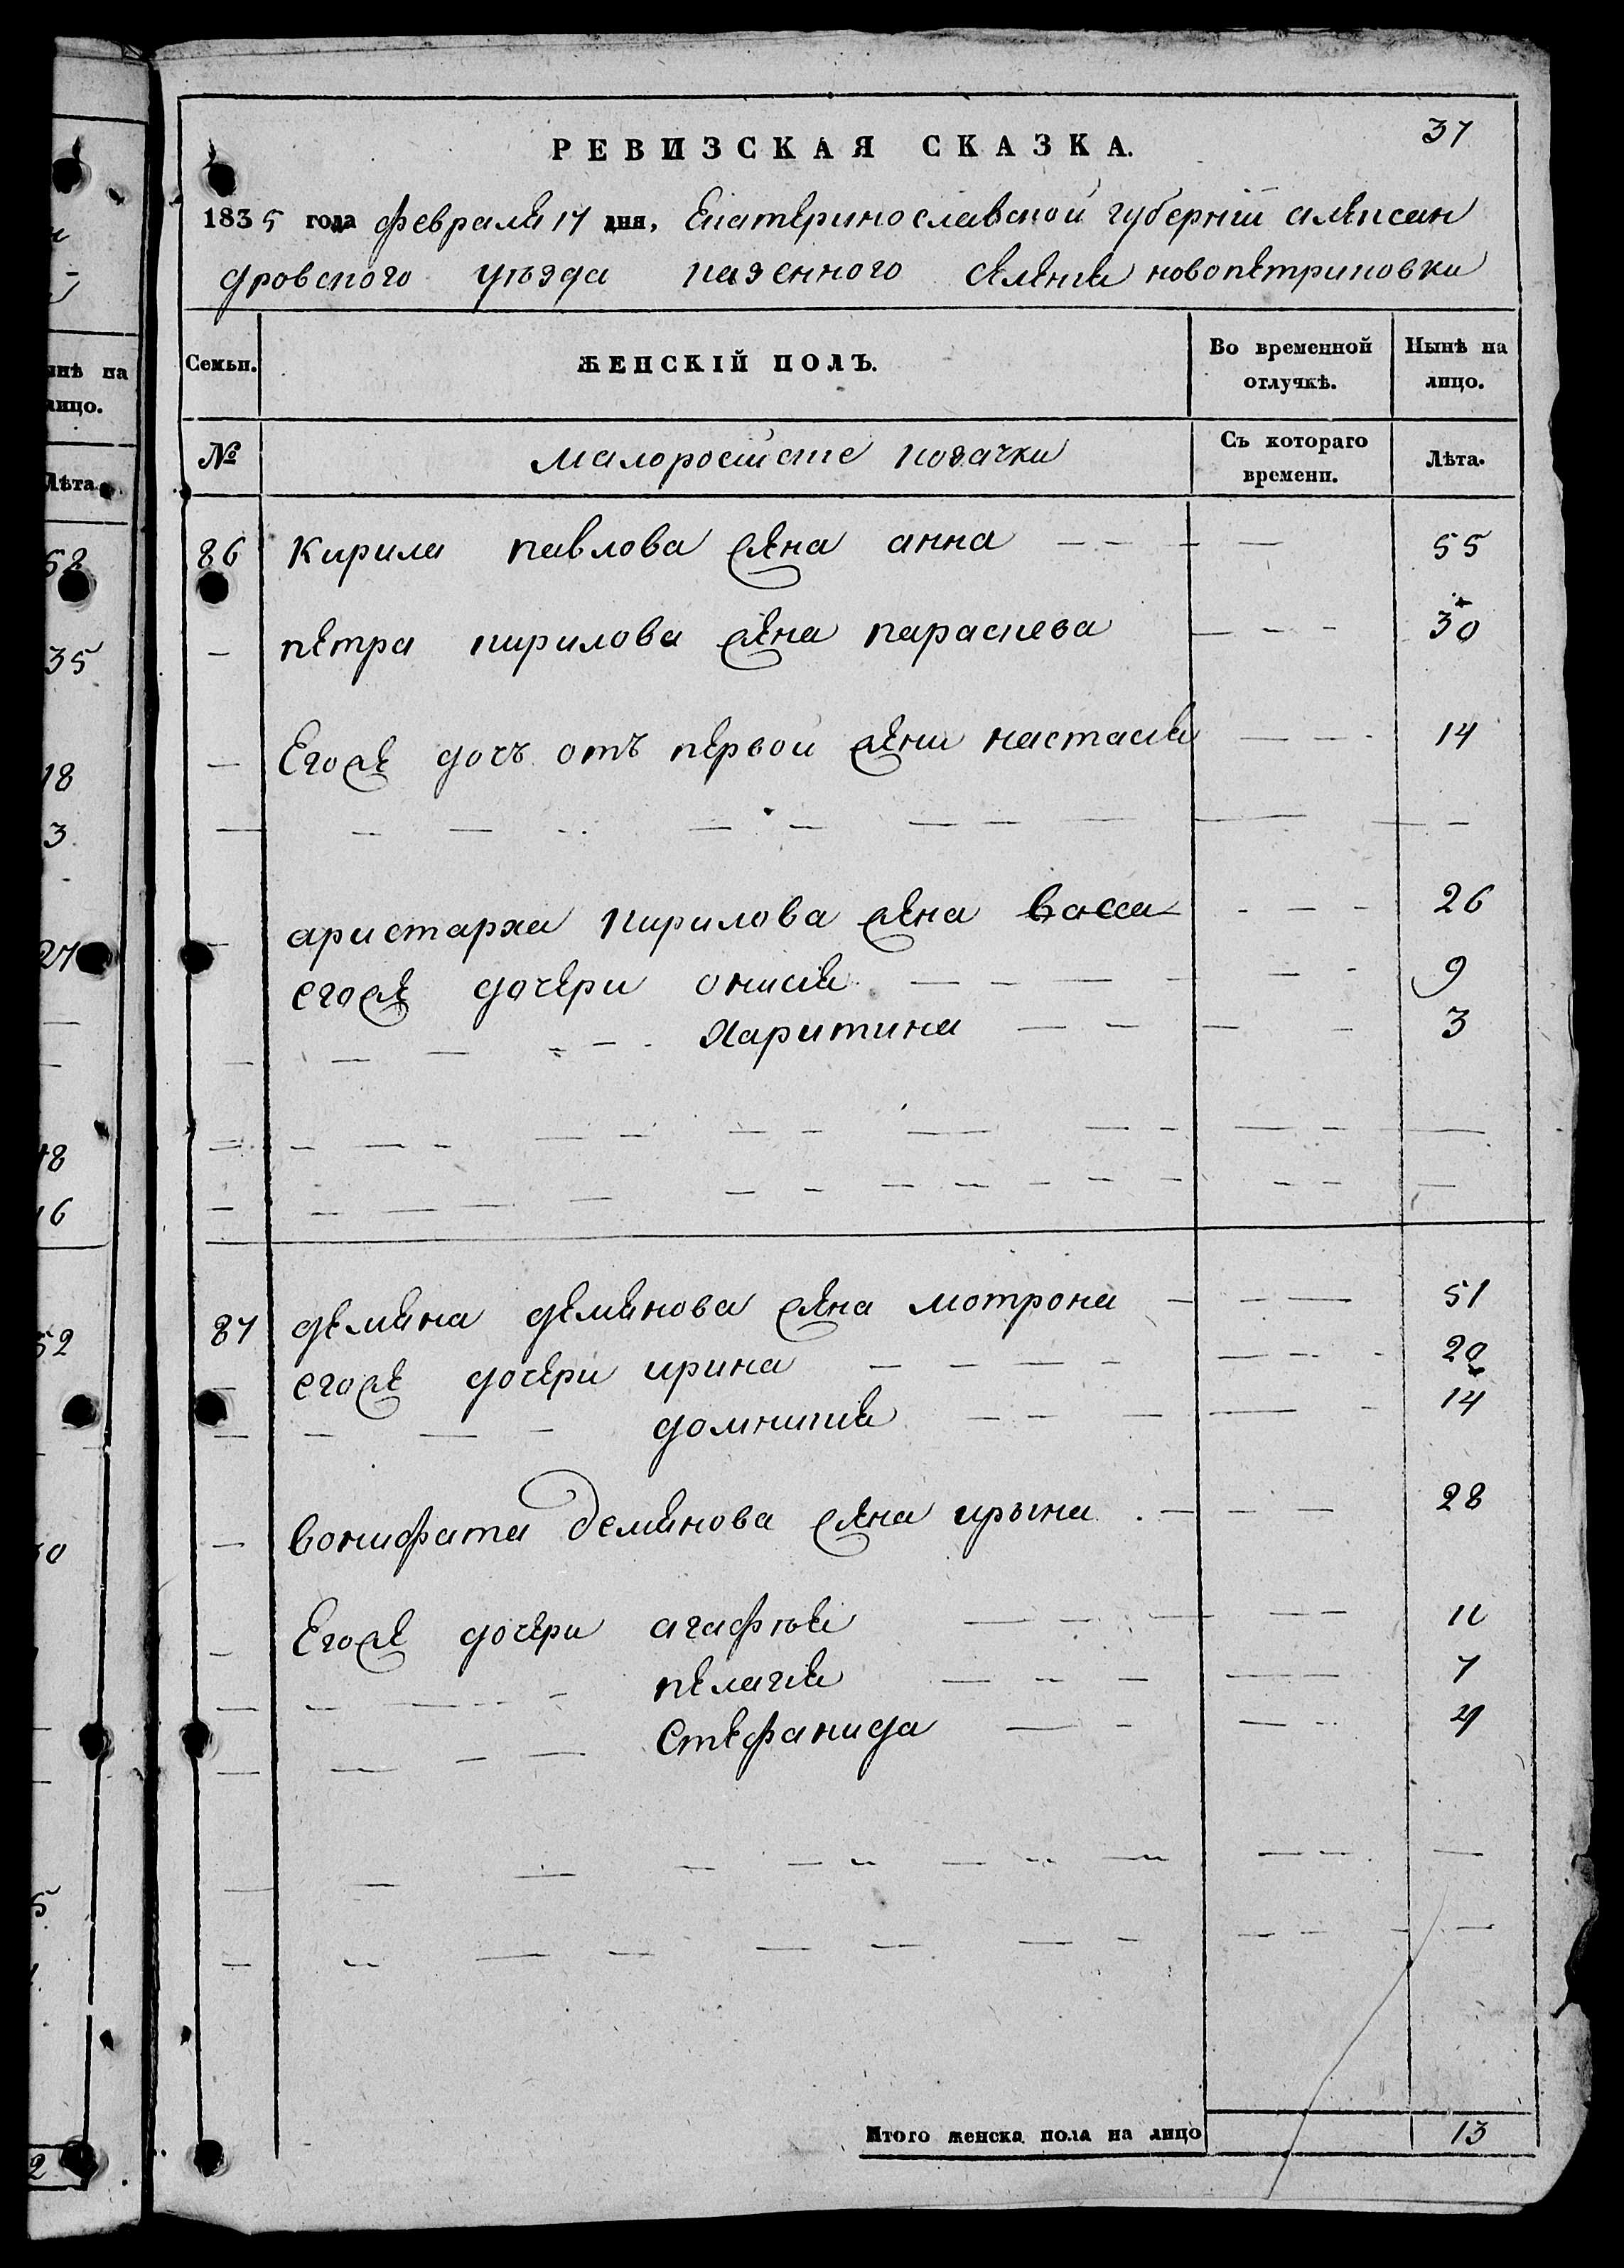 РЕВИЗСКАЯ СКАЗКА.
37
1835 года февраля 17 дня, Екатеринославской губернїи алексан
дровского уѣзда казенного селения новопетриковки
Семьи.
ЖЕНСКІЙ ПОЛЪ.
Во временной отлучкѣ.
Нынѣ на лицо.
№
малоросийские козачки
Съ котораго времени.
Лѣта.
86 Кирила павлова жена анна 55
петра кирилова жена параскева 30
Егоже дочъ отъ первой жени настасия 14
аристарха кирилова жена васса 26
егоже дочери онисия 9
Харитина 3
87 демяна демянова жена мотрона 51
егоже дочери ирина 20
домникия 14
вонифата демянова жена ирына 28
Егоже дочери агафия 11
пелагия 7
Стефанида 4
Итого женска пола на лицо 13
нѣ на
лицо.
Лѣта.
35
18
3
27
18
16
52